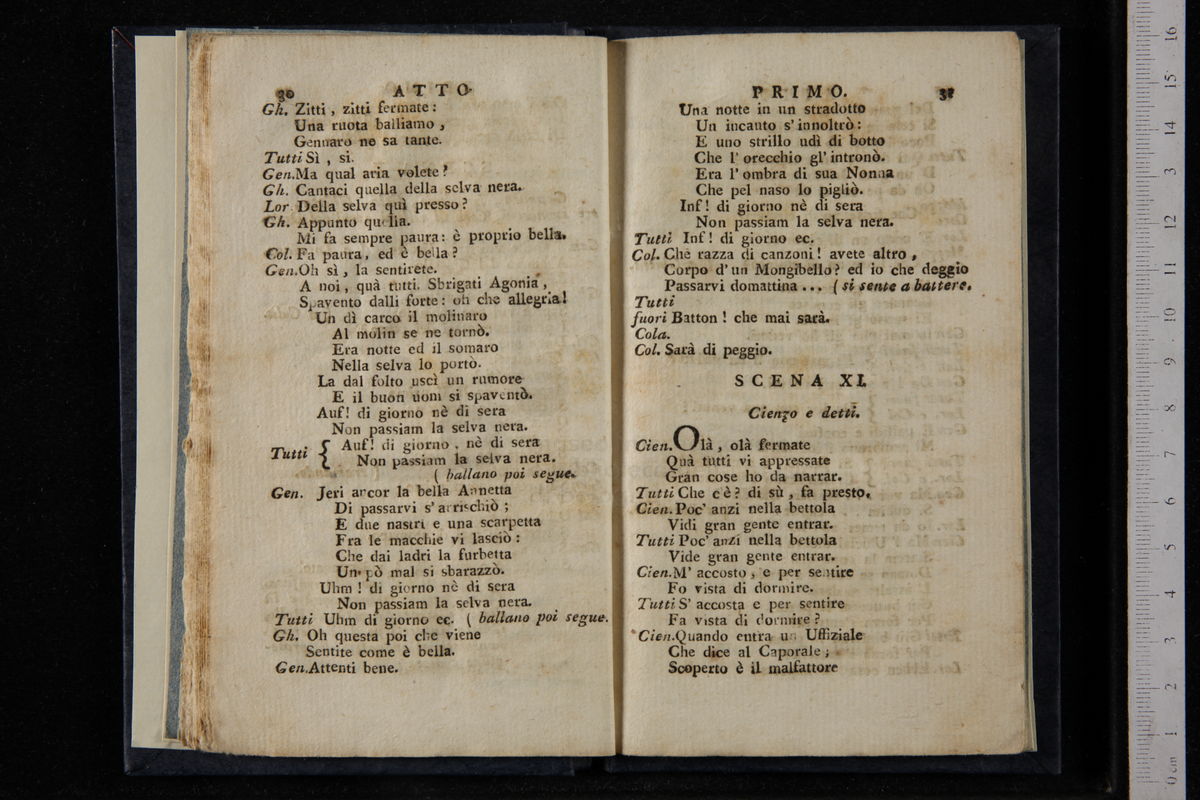 30 ATTO
Gh. Zitti, zitti fermate:
Una ruota balliamo,
Gennaro ne sa tante.
Tutti Sì, si.
Gen. Ma qual aria volete?
Gh. Cantaci quella della selva nera.
Lor Della selva quì presso?
Gh. Appunto quella.
Mi fa sempre paura: è proprio bella.
Col. Fa paura, ed è bella?
Gen. Oh sì, la sentirete.
A noi, quà tutti. Sbrigati Agonia,
Spavento dalli forte: oh che allegria!
Un dì carco il molinaro
Al molin se ne tornò.
Era notte ed il somaro
Nella selva lo portò.
La dal folto uscì un rumore
E il buon uom si spaventò.
Auf! di giorno nè di sera
Non passiam la selva nera.
Tutti { Auf! di giorno. nè di sera
Non passiam la selva nera.
( ballano poi segue.
Gen. Jeri ancor la bella Annetta
Di passarvi s'arrischiò;
E due nastri e una scarpetta
Fra le macchie vi lasciò:
Che dai ladri la furbetta
Un pò mal si sbarazzò.
Uhm! di giorno nè di sera
Non passiam la selva nera.
Tutti Uhm di giorno ec. ( ballano poi segue.
Gh. Oh questa poi che viene
Sentite come è bella.
Gen. Attenti bene.
PRIMO. 31
Una notte in un stradotto
Un incauto s'innoltrò:
E uno strillo udì di botto
Che l'orecchio gl'intronò.
Era l'ombra di sua Nonna
Che pel naso lo pigliò.
Inf! di giorno nè di sera
Non passiam la selva nera.
Tutti Inf! di giorno ec.
Col. Che razza di canzoni! avete altro,
Corpo d'un Mongibello? ed io che deggio
Passarvi domattina... ( si sente a battere.
Tutti
fuori Batton! che mai sarà.
Cola.
Col. Sarà di peggio.
SCENA XI.
Cienzo e detti.
Cien. Olà, olà fermate
Quà tutti vi appressate
Gran cose ho da narrar.
Tutti Che c'è? di sù, fa presto.
Cien. Poc'anzi nella bettola
Vidi gran gente entrar.
Tutti Poc'anzi nella bettola
Vide gran gente entrar.
Cien. M'accosto, e per sentire
Fo vista di dormire.
Tutti S'accosta e per sentire
Fa vista di dormire?
Cien. Quando entra un Uffiziale
Che dice al Caporale;
Scoperto è il malfattore
0 cm 1 2 3 4 5 6 7 8 9 10 11 12 13 14 15 16